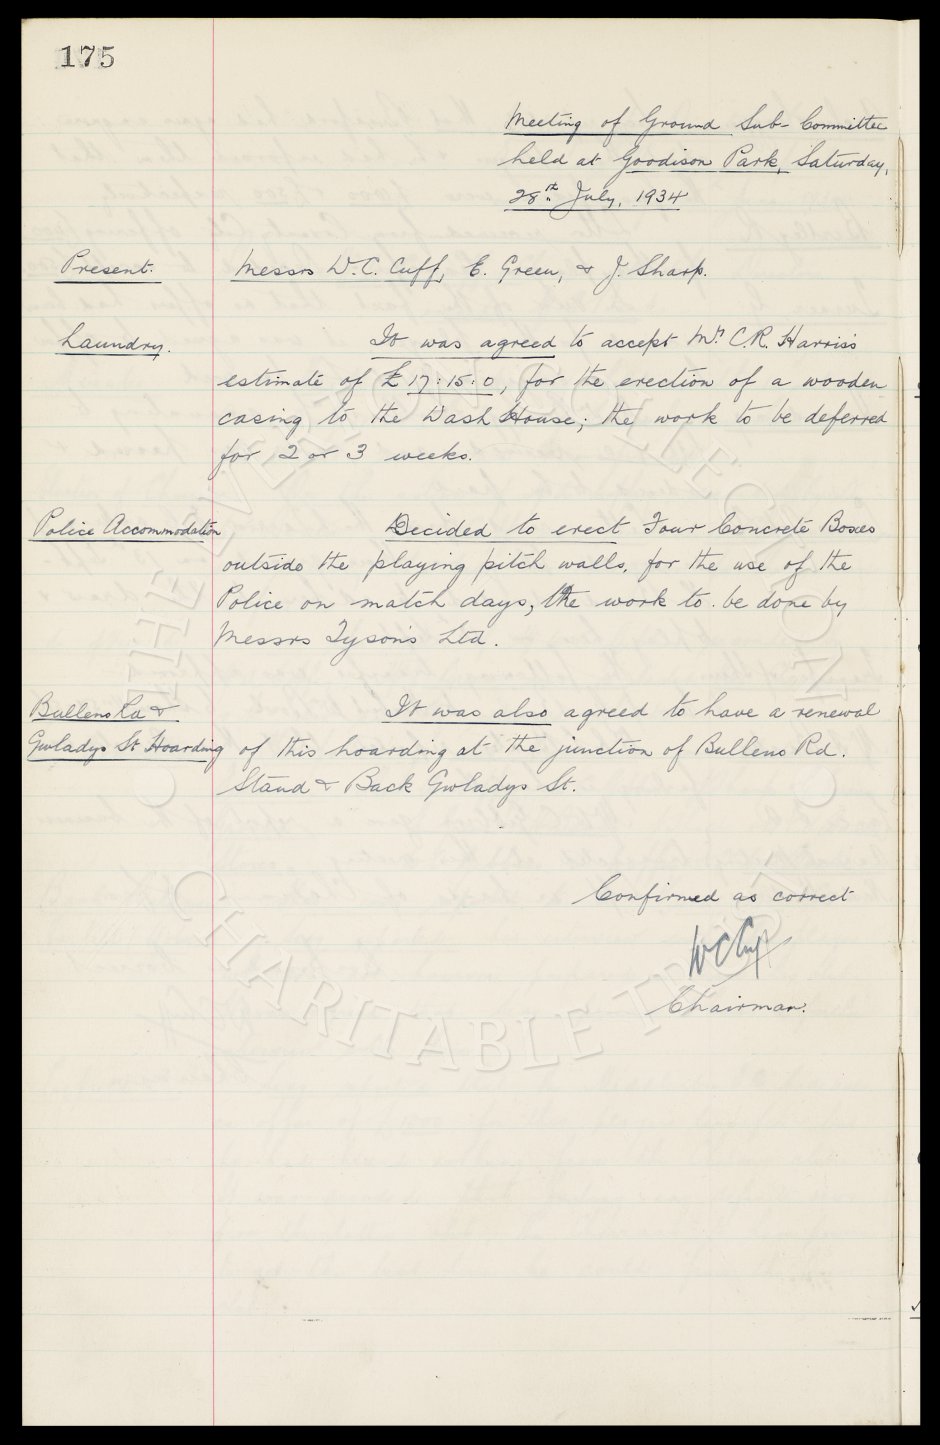 175
Meeting of Ground Sub-Committee
held at Goodison Park, Saturday,
28th July, 1934
Present: Messrs W.C. Cuff, E. Green, & J. Sharp.
Laundry. It was agreed to accept Mr C.R. Harris's
estimate of £17:15:0, for the erection of a wooden
casing to the Wash House; the work to be deferred
for 2 or 3 weeks.
Police Accommodation Decided to erect Four Concrete Boxes
outside the playing pitch walls, for the use of the
Police on match days, the work to be done by
Messrs Tysons Ltd.
Bullens Rd & It was also agreed to have a renewal
Gwladys St Hoarding of this hoarding at the junction of Bullens Rd.
Stand & Back Gwladys St.
Confirmed as correct
W C Cuff
Chairman.
THE EVERTON COLLECTION
CHARITABLE TRUST